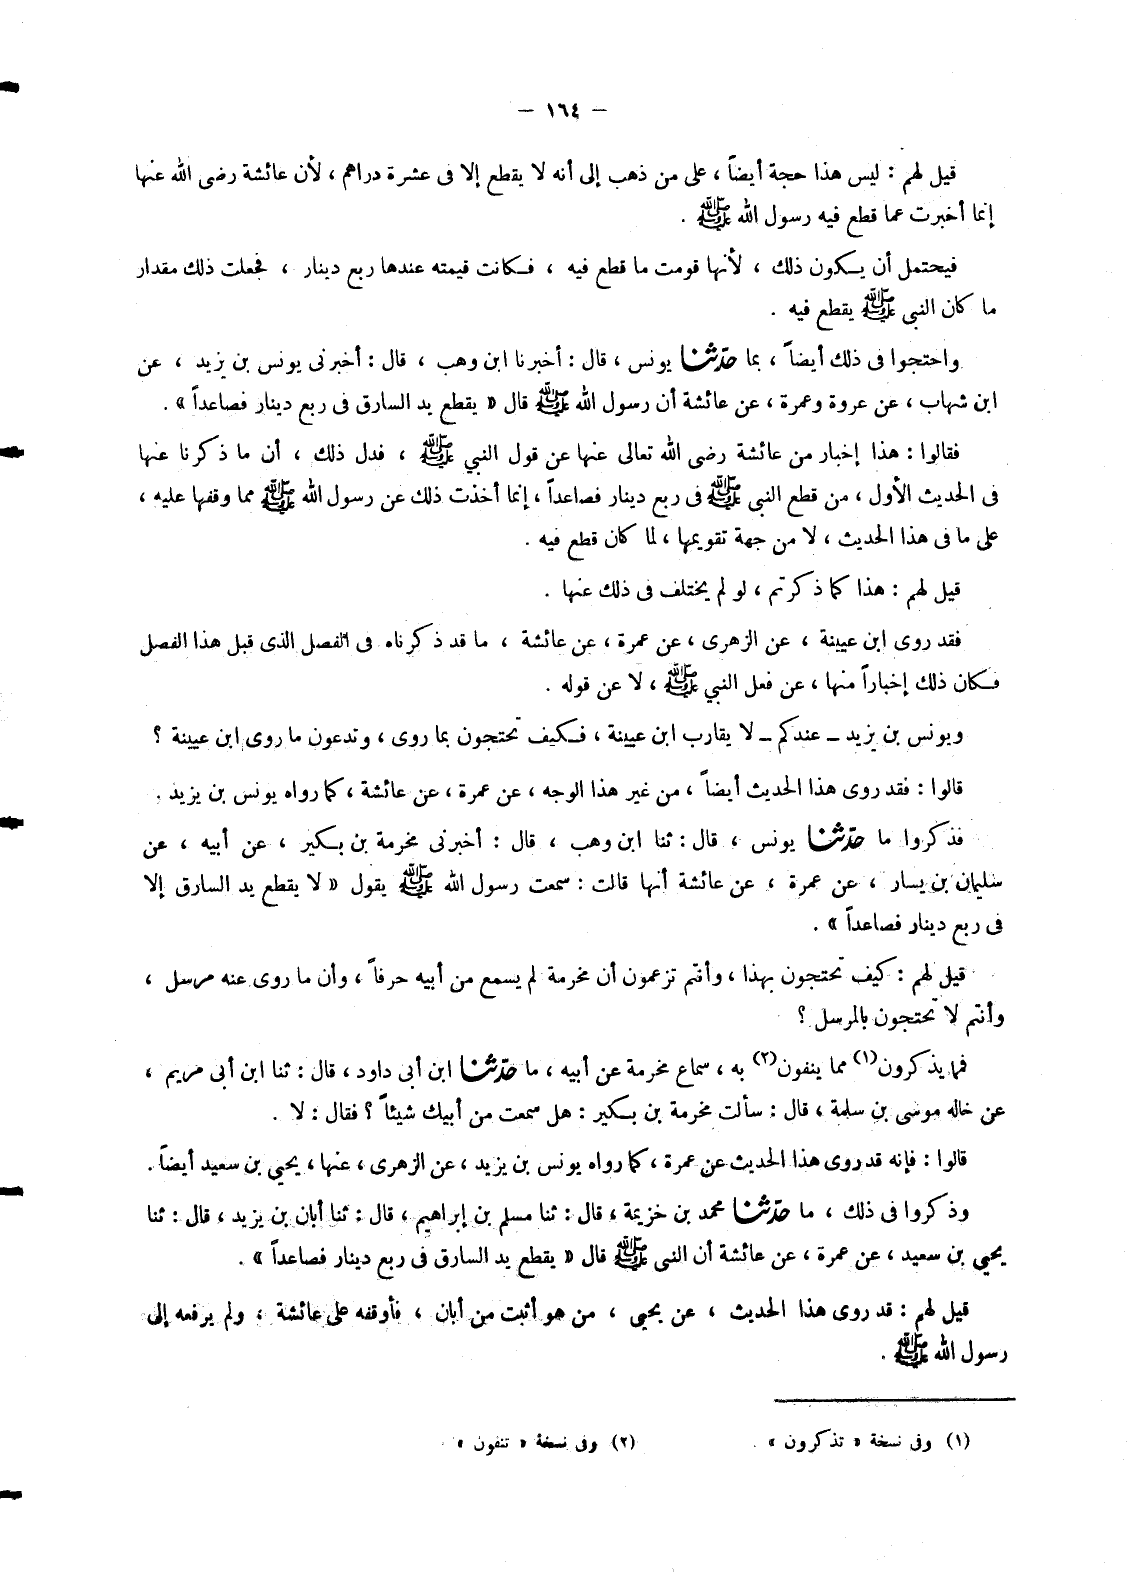 – ١٦٤ –
قيل لهم : ليس هذا حجة أيضاً ، على من ذهب إلى أنه لا يقطع إلا فى عشرة دراهم ، لأن عائشة رضى الله عنها
إنما أخبرت عما قطع فيه رسول الله ﷺ .
فيحتمل أن يكون ذلك ، لأنها قومت ما قطع فيه ، فكانت قيمته عندها ربع دينار ، فجعلت ذلك مقدار
ما كان النبى ﷺ يقطع فيه .
واحتجوا فى ذلك أيضاً ، بما حدّثنا يونس ، قال : أخبرنا ابن وهب ، قال : أخبرنى يونس بن يزيد ، عن
ابن شهاب ، عن عروة وعمرة ، عن عائشة أن رسول الله ﷺ قال « يقطع يد السارق فى ربع دينار فصاعداً » .
فقالوا : هذا إخبار من عائشة رضى الله تعالى عنها عن قول النبي ﷺ ، فدل ذلك ، أن ما ذكرنا عنها
فى الحديث الأول ، من قطع النبى ﷺ فى ربع دينار فصاعداً ، إنما أخذت ذلك عن رسول الله ﷺ مما وقفها عليه ،
على ما فى هذا الحديث ، لا من جهة تقويمها ، لما كان قطع فيه .
قيل لهم : هذا كما ذكرتم ، لو لم يختلف فى ذلك عنها .
فقد روى ابن عيينة ، عن الزهرى ، عن عمرة ، عن عائشة ، ما قد ذكرناه فى الفصل الذى قبل هذا الفصل
فكان ذلك إخباراً منها ، عن فعل النبي ﷺ ، لا عن قوله .
ويونس بن يزيد – عندكم – لا يقارب ابن عيينة ، فكيف تحتجون بما روى ، وتدعون ما روى ابن عيينة ؟
قالوا : فقد روى هذا الحديث أيضاً ، من غير هذا الوجه ، عن عمرة ، عن عائشة ، كما رواه يونس بن يزيد .
فذكروا ما حدّثنا يونس ، قال : ثنا ابن وهب ، قال : أخبرنى مخرمة بن بكير ، عن أبيه ، عن
سليمان بن يسار ، عن عمرة ، عن عائشة أنها قالت : سمعت رسول الله ﷺ يقول « لا يقطع يد السارق إلا
فى ربع دينار فصاعداً » .
قيل لهم : كيف تحتجون بهذا ، وأنتم تزعمون أن مخرمة لم يسمع من أبيه حرفاً ، وأن ما روى عنه مرسل ،
وأنتم لا تحتجون بالمرسل ؟
فما يذكرون(١) مما ينفون(٢) به ، سماع مخرمة عن أبيه ، ما حدّثنا ابن أبى داود ، قال : ثنا ابن أبى مريم ،
عن خاله موسى بن سلمة ، قال : سألت مخرمة بن بكير : هل سمعت من أبيك شيئاً ؟ فقال : لا .
قالوا : فإنه قد روى هذا الحديث عن عمرة ، كما رواه يونس بن يزيد ، عن الزهرى ، عنها ، يحيي بن سعيد أيضاً .
وذكروا فى ذلك ، ما حدّثنا محمد بن خزيمة ، قال : ثنا مسلم بن إبراهيم ، قال : ثنا أبان بن يزيد ، قال : ثنا
يحيي بن سعيد ، عن عمرة ، عن عائشة أن النبى ﷺ قال « يقطع يد السارق فى ربع دينار فصاعداً » .
قيل لهم : قد روى هذا الحديث ، عن يحيى ، من هو أثبت من أبان ، فأوقفه على عائشة ، ولم يرفعه إلى
رسول الله ﷺ .
(١) وفى نسخة « تذكرون » (٢) وفى نسخة « تنفون »